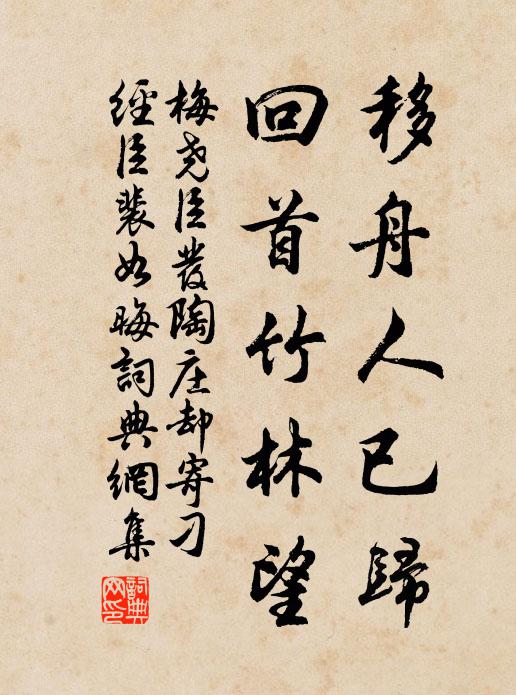 移舟人已歸
回首竹林望
梅尧臣發陶庄却寄刁
經臣裴如晦詞典網集
詞典网印